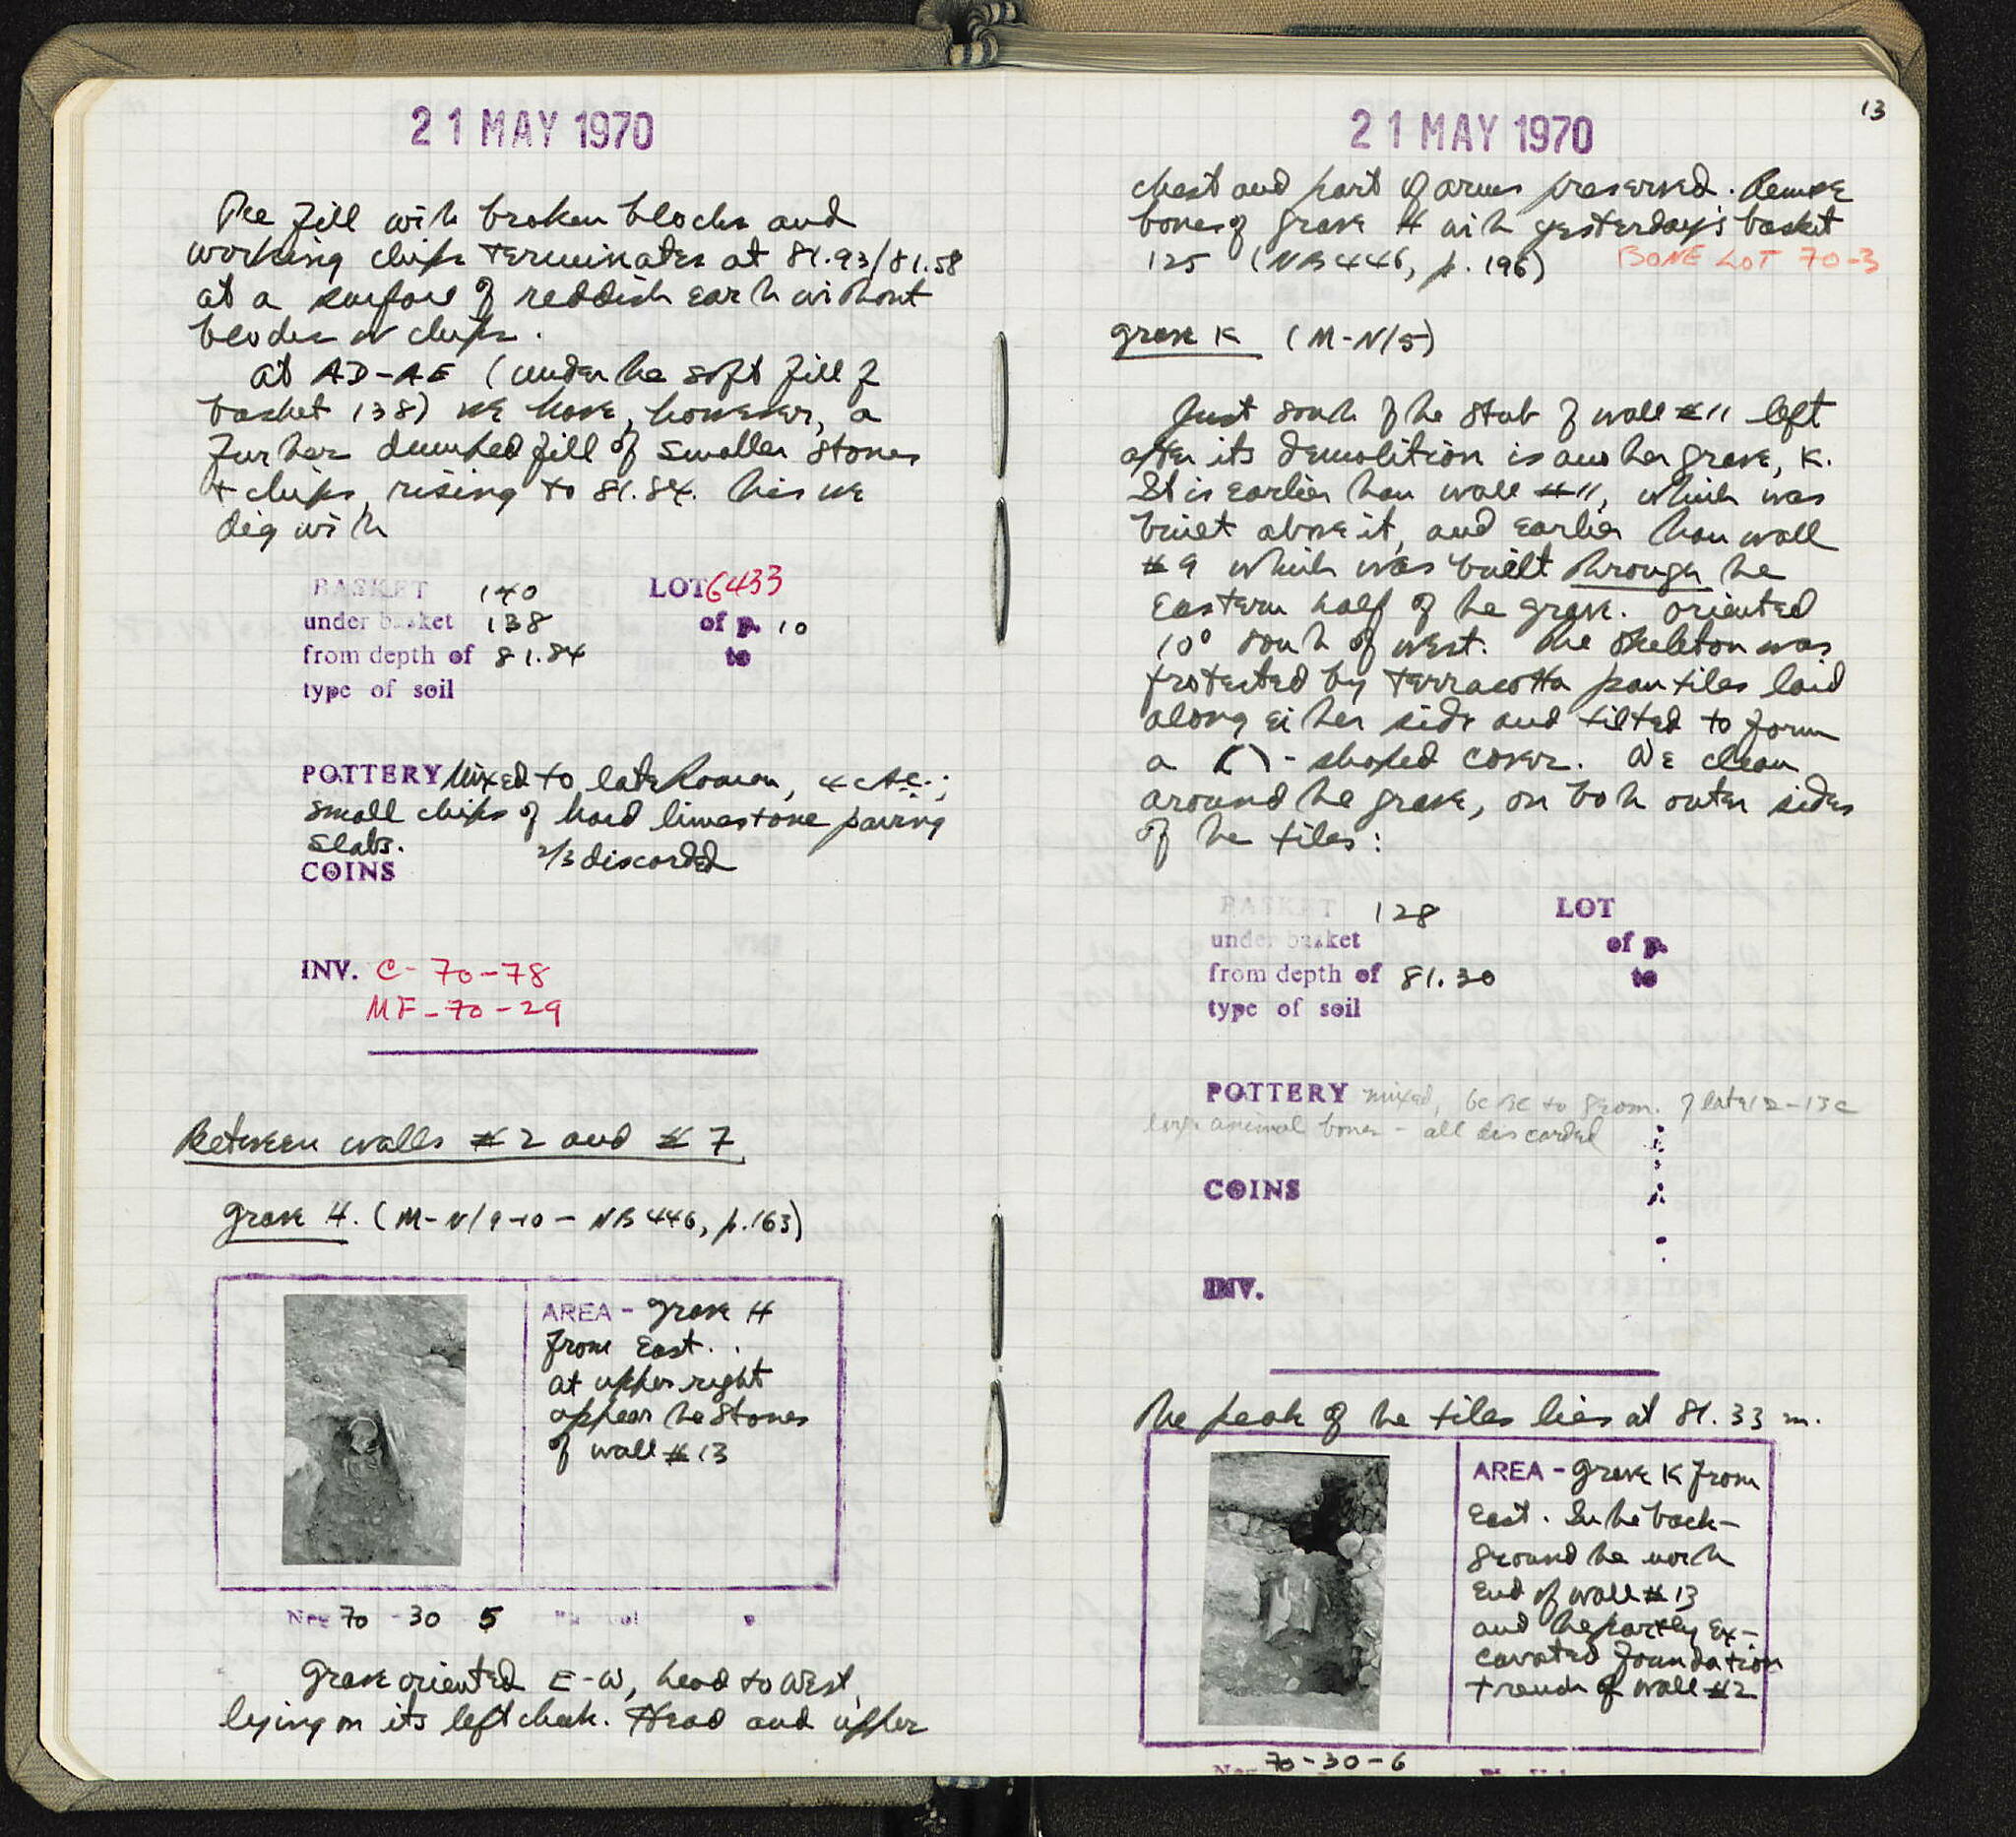 21 MAY 1970
The fill with broken blocks and
working chips terminates at 81.93/81.58
at a surface of reddish earth without
blocks or chips.
At AD-AE (under the soft fill of
basket 138) we have, however, a
further dumped fill of smaller stones
+ chips, rising to 81.84. This we
dig with
BASKET 140 LOT 6433
under basket 138 of p. 10
from depth of 81.84 to
type of soil
POTTERY Mixed to late Roman, 4 c A.C.;
small chips of hard limestone paving
slabs. 2/3 discarded
COINS
INV. C-70-78
MF-70-29
Between walls #2 and #7
Grave H. (M-N/9-10 - NB 446, p.163)
AREA - Grave H
from East.
At upper right
appear the stones
of wall #13
Neg 70-30 5
Grave oriented E-W, head to West,
lying on its left cheek. Head and upper
13
21 MAY 1970
chest and part of arms preserved. Remove
bones of grave H with yesterday's basket
125 (NB 446, p. 196) BONE LOT 70-3
Grave K (M-N/5)
Just south of the stub of wall #11 left
after its demolition is another grave, K.
It is earlier than wall #11, which was
built above it, and earlier than wall
#9 which was built through the
Eastern half of the grave. Oriented
10° south of west. The skeleton was
protected by terracotta pan tiles laid
along either side and tilted to form
a ( ) - shaped cover. We clean
around the grave, on both outer sides
of the tiles:
BASKET 128 LOT
under basket of p.
from depth of 81.30 to
type of soil
POTTERY mixed, 6c BC to of late 12-13c
large animal bones - all discarded
COINS
INV.
The peak of the tiles lies at 81.33 m.
AREA - Grave K from
East. In the back-
ground the north
End of wall #13
and the partly ex-
cavated foundation
trench of wall #2
Neg 70-30-6